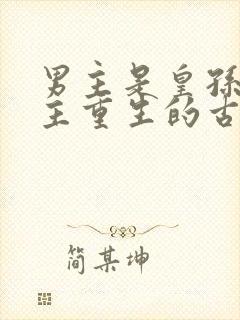 男主是皇孙
主重生的古
简某坤